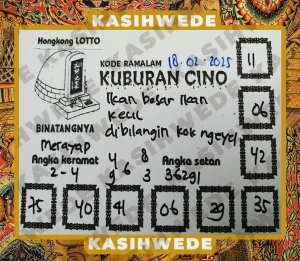 KASIHWEDE
Hongkong LOTTO
KODE RAMALAM 18-02-2025
KUBURAN CINO
11
Ikan besar Ikan
kecil
dibilangin kok ngeyel
06
BINATANGNYA
Merayap
42
Angka keramat 4 8 Angka setan
2-4 9 6 3 36291
75 40 41 06 29 35
KASIHWEDE